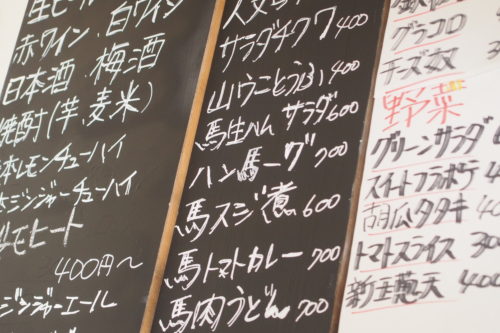 生ビール
赤ワイン、白ワイン
日本酒、梅酒
焼酎(芋、麦、米)
レモンチューハイ
ジンジャーチューハイ
モヒート
400円〜
ジンジャーエール
サラダチクワ 400
山ウニとうふ 400
馬生ハム サラダ 600
ハン馬ーグ 700
馬スジ煮 600
馬トマトカレー 700
馬肉うどん 700
グラコロ
チーズ奴
野菜
グリーンサラダ
スイートフラポテ
胡瓜タタキ
トマトスライス
新玉葱天 400